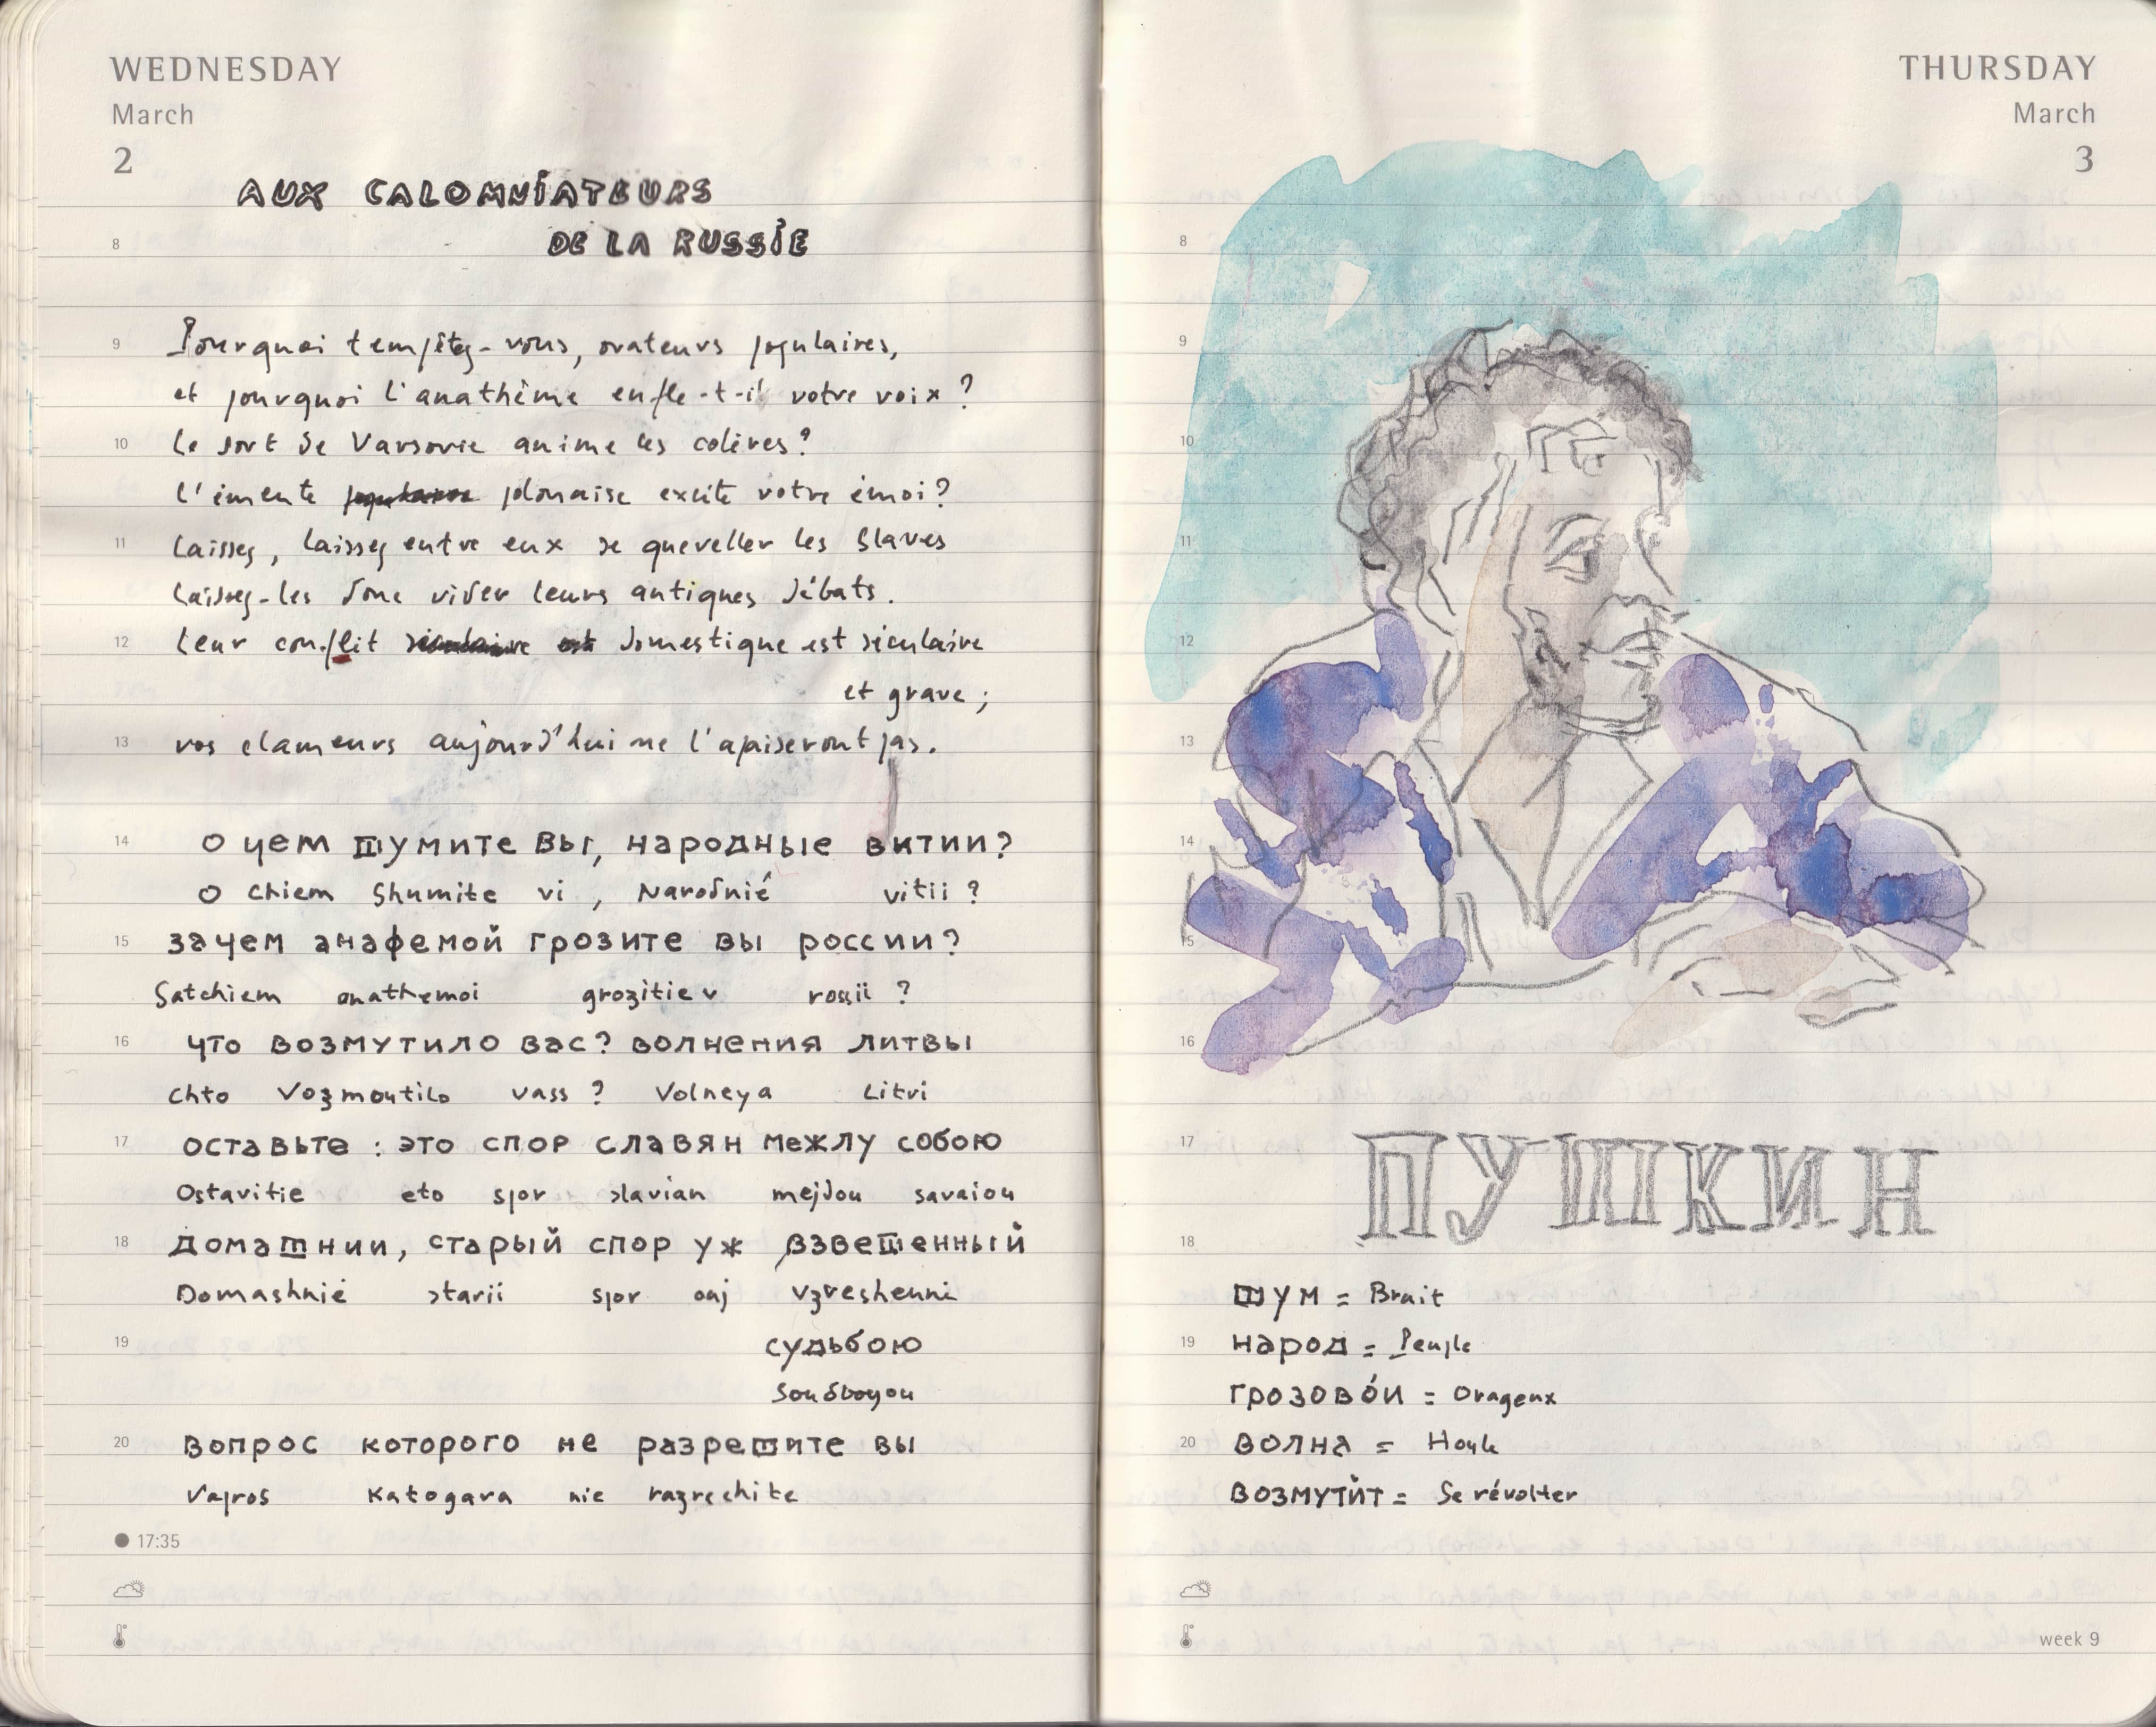 WEDNESDAY
March
2
AUX CALOMNIATEURS
8 DE LA RUSSIE
9 Pourquoi tempêtez-vous, orateurs populaires,
et pourquoi l'anathème enfle-t-il votre voix ?
10 Le sort de Varsovie anime les colères ?
L'émeute polonaise excite votre émoi ?
11 Laissez, laissez entre eux se quereller les Slaves
Laissez-les donc vider leurs antiques débats.
12 Leur conflit domestique est séculaire
et grave ;
13 vos clameurs aujourd'hui ne l'apaiseront pas.
14 О чем шумите вы, народные витии?
O chiem Shumite vi , Narodnié vitii ?
15 зачем анафемой грозите вы россии?
Satchiem anathemoi grozitie v rossii ?
16 что возмутило вас? волнения литвы
Chto Vozmoutilo vass ? Volneya Litvi
17 оставьте : это спор славян межлу собою
Ostavitie eto spor slavian mejdou savaiou
18 домашнии, старый спор уж взвешенный
Domashnié starii spor ouj vzveshenni
19 судьбою
Soudboyou
20 вопрос которого не разрешите вы
Vapros Katogara nie razrechite
17:35
THURSDAY
March
3
8
9
10
11
12
13
14
15
16
17 ПУШКИН
18
шум = Bruit
19 народ = Peuple
грозово́и = Orageux
20 волна = Houle
возмути́т = Se révolter
week 9